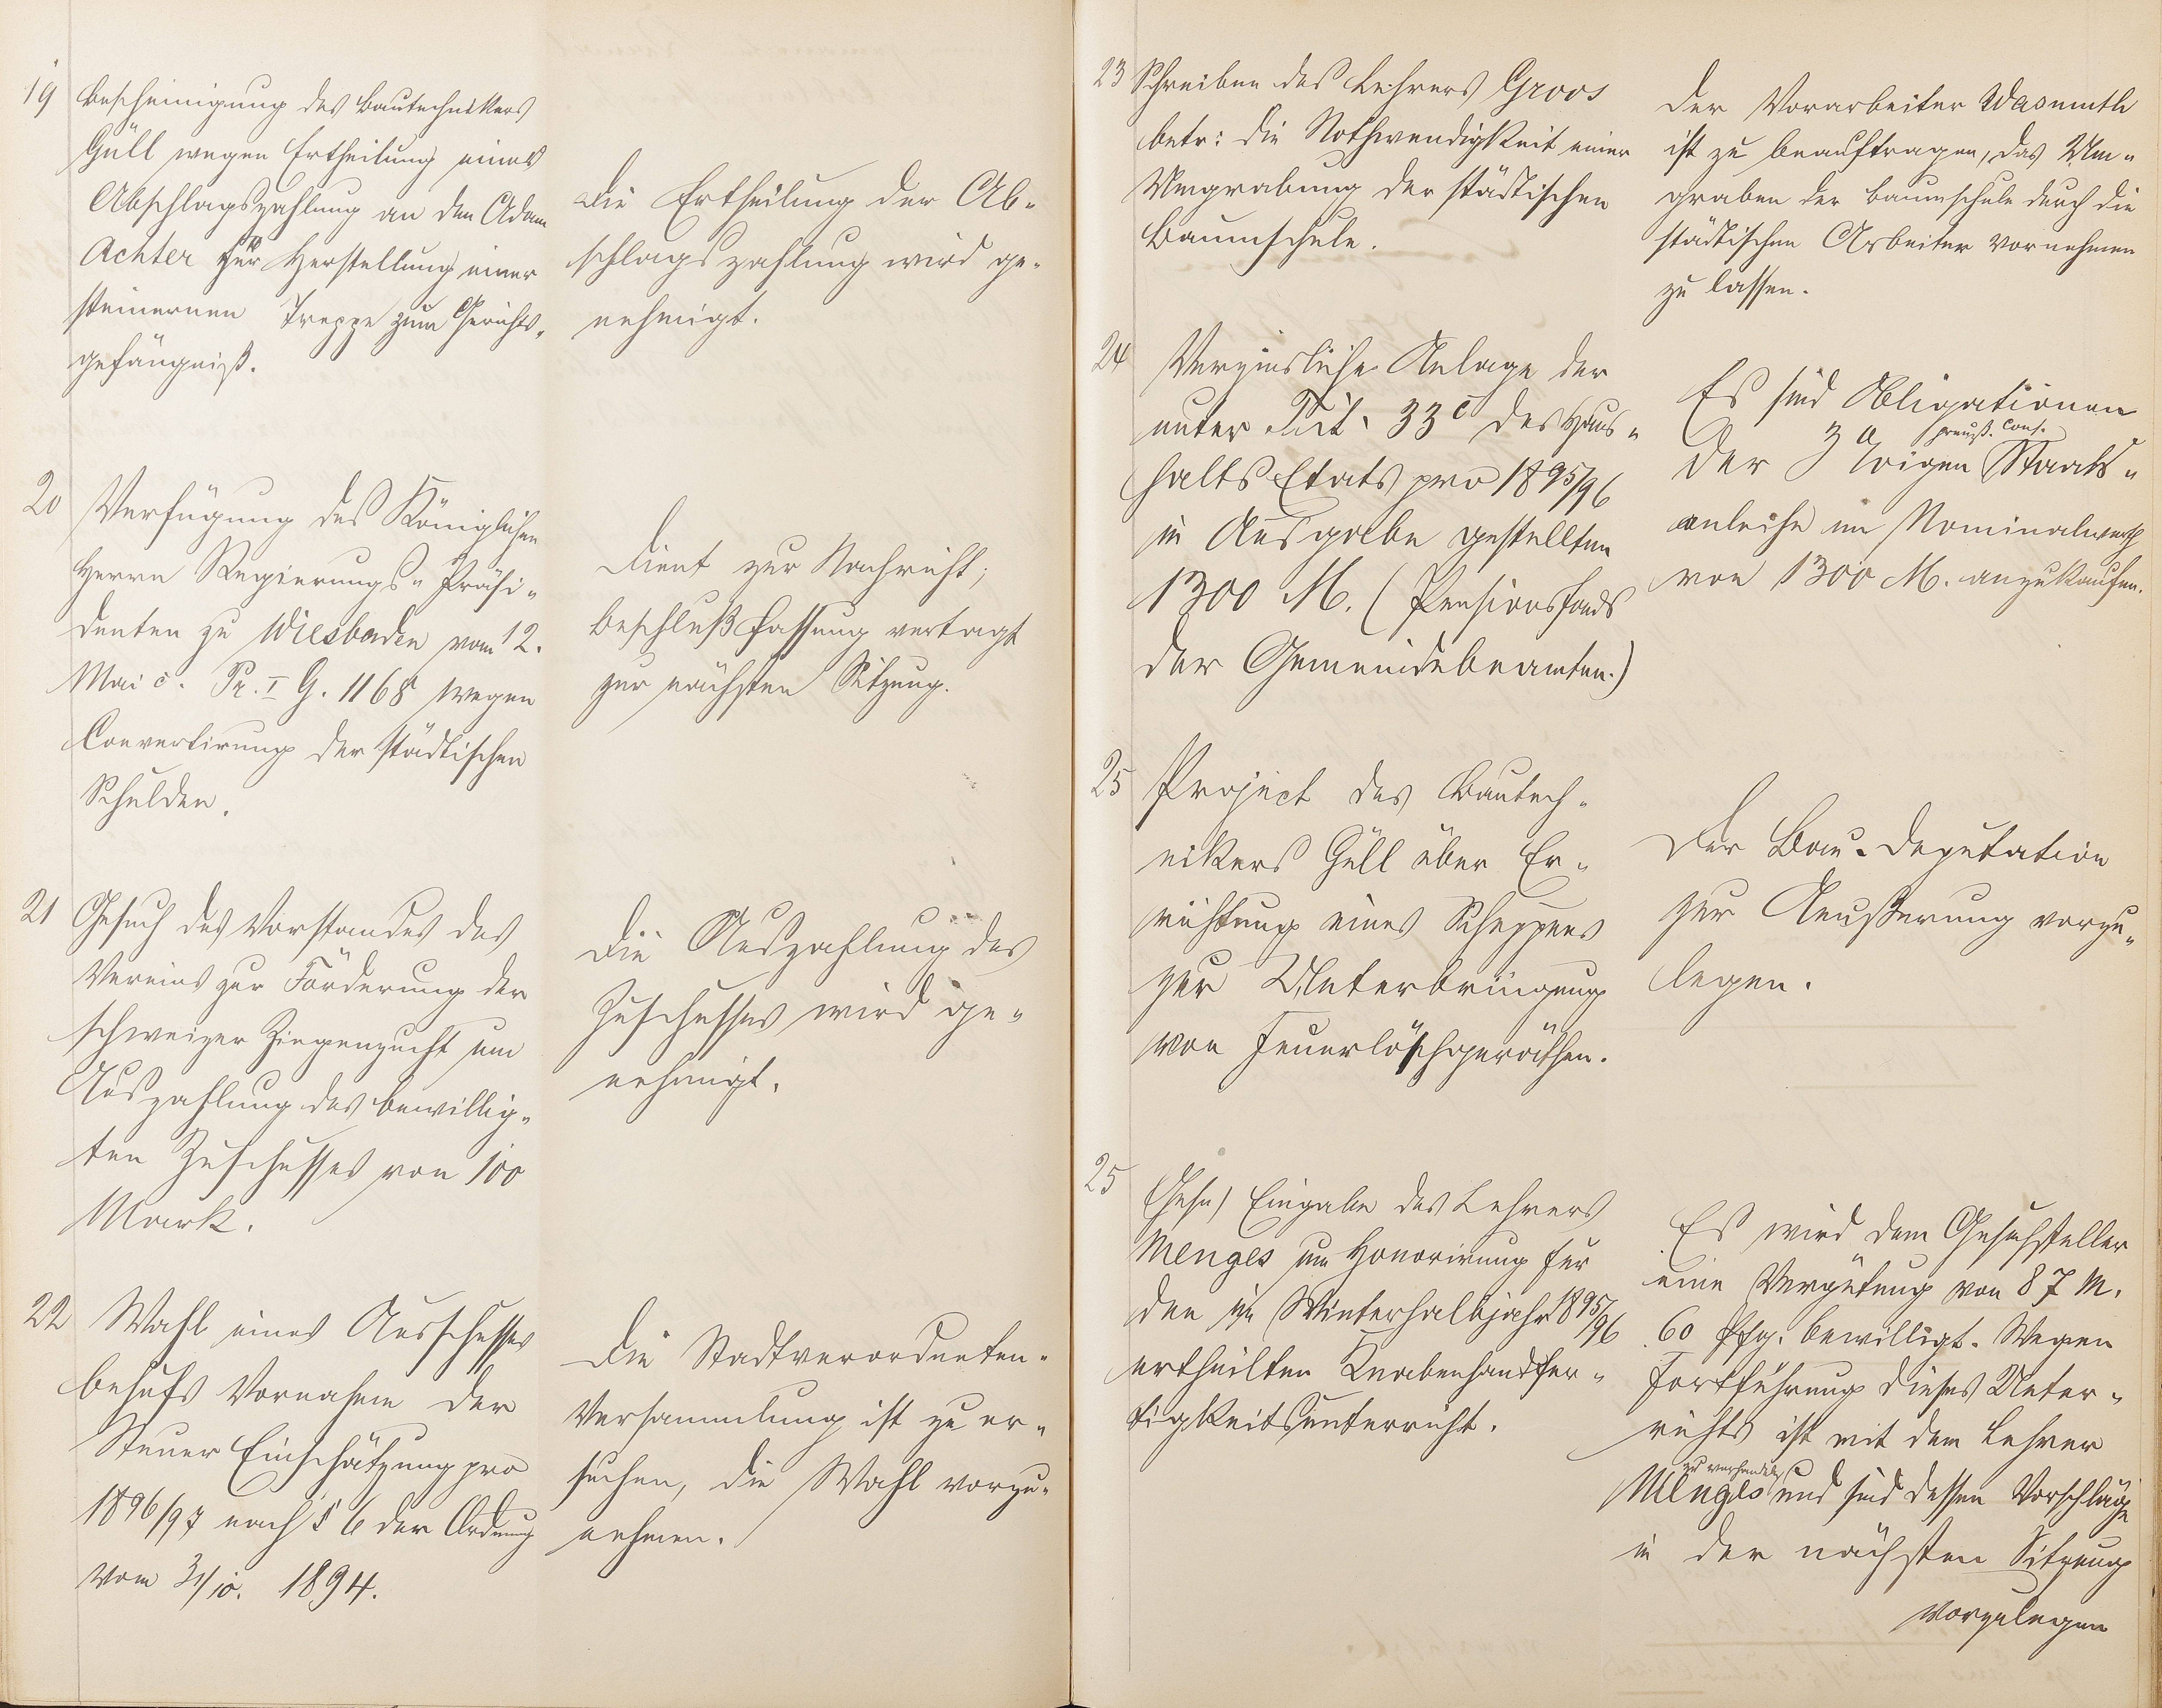 19 Bescheinigung des Bautechnikers
Güll wegen Ertheilung einer
Abschlagszahlung an den Adam
Achter für Herstellung einer
steinernen Treppe zum Gerichts-
gefängniß.
Die Ertheilung der Ab-
schlagszahlung wird ge-
nehmigt.
20 Verfügung des Königlichen
Herrn Regierungs-Präsi-
denten zu Wiesbaden vom 12.
Mai c. Pr. I G. 1168 wegen
Convertirung der städtischen
Schulden.
Dient zur Nachricht;
Beschlußfassung vertagt
zur nächsten Sitzung.
21 Gesuch des Vorstandes des
Vereins zur Förderung der
schweizer Ziegenzucht um
Auszahlung des bewillig-
ten Zuschusses von 100
Mark.
Die Auszahlung des
Zuschusses wird ge-
nehmigt.
22 Wahl eines Ausschusses
behufs Vornahme der
Steuer Einschätzung pro
1896/97 nach § 6 der Ordnung
vom 31/10. 1894.
Die Stadtverordneten-
Versammlung ist zu er-
suchen, die Wahl vorzu-
nehmen.
23 Schreiben des Lehrers Groos
betr: die Nothwendigkeit einer
Umgrabung der städtischen
Baumschule.
Der Vorarbeiter Wasmuth
ist zu beauftragen, das Um-
graben der Baumschule durch die
städtischen Arbeiter vornehmen
zu lassen.
24 Verzinsliche Anlage der
unter Tit. 33c des Haus-
halts Etats pro 1895/96
in Ausgabe gestellten
1300 M. (Pensionsfonds
der Gemeindebeamten.)
Es sind Obligationen
der 3 %igen preuß. cons. Staats-
anleihe im Nominalwerth
von 1300 M. anzukaufen.
25 Project des Bautech-
nikers Güll über Er-
richtung eines Schuppens
zur Unterbringung
von Feuerlöschgeräthen.
Der Bau-Deputation
zur Aeußerung vorzu-
legen.
25 (Gesu) Eingabe des Lehrers
Menges um Honorirung für
den im Winterhalbjahr 1895/96
ertheilten Knabenhandfer-
tigkeitsunterricht.
Es wird dem Gesuchsteller
eine Vergütung von 87 M.
60 Pfg. bewilligt. Wegen
Fortführung dieses Unter-
richts ist mit dem Lehrer
Menges zu verhandeln und sind dessen Vorschläge
in der nächsten Sitzung
vorzulegen